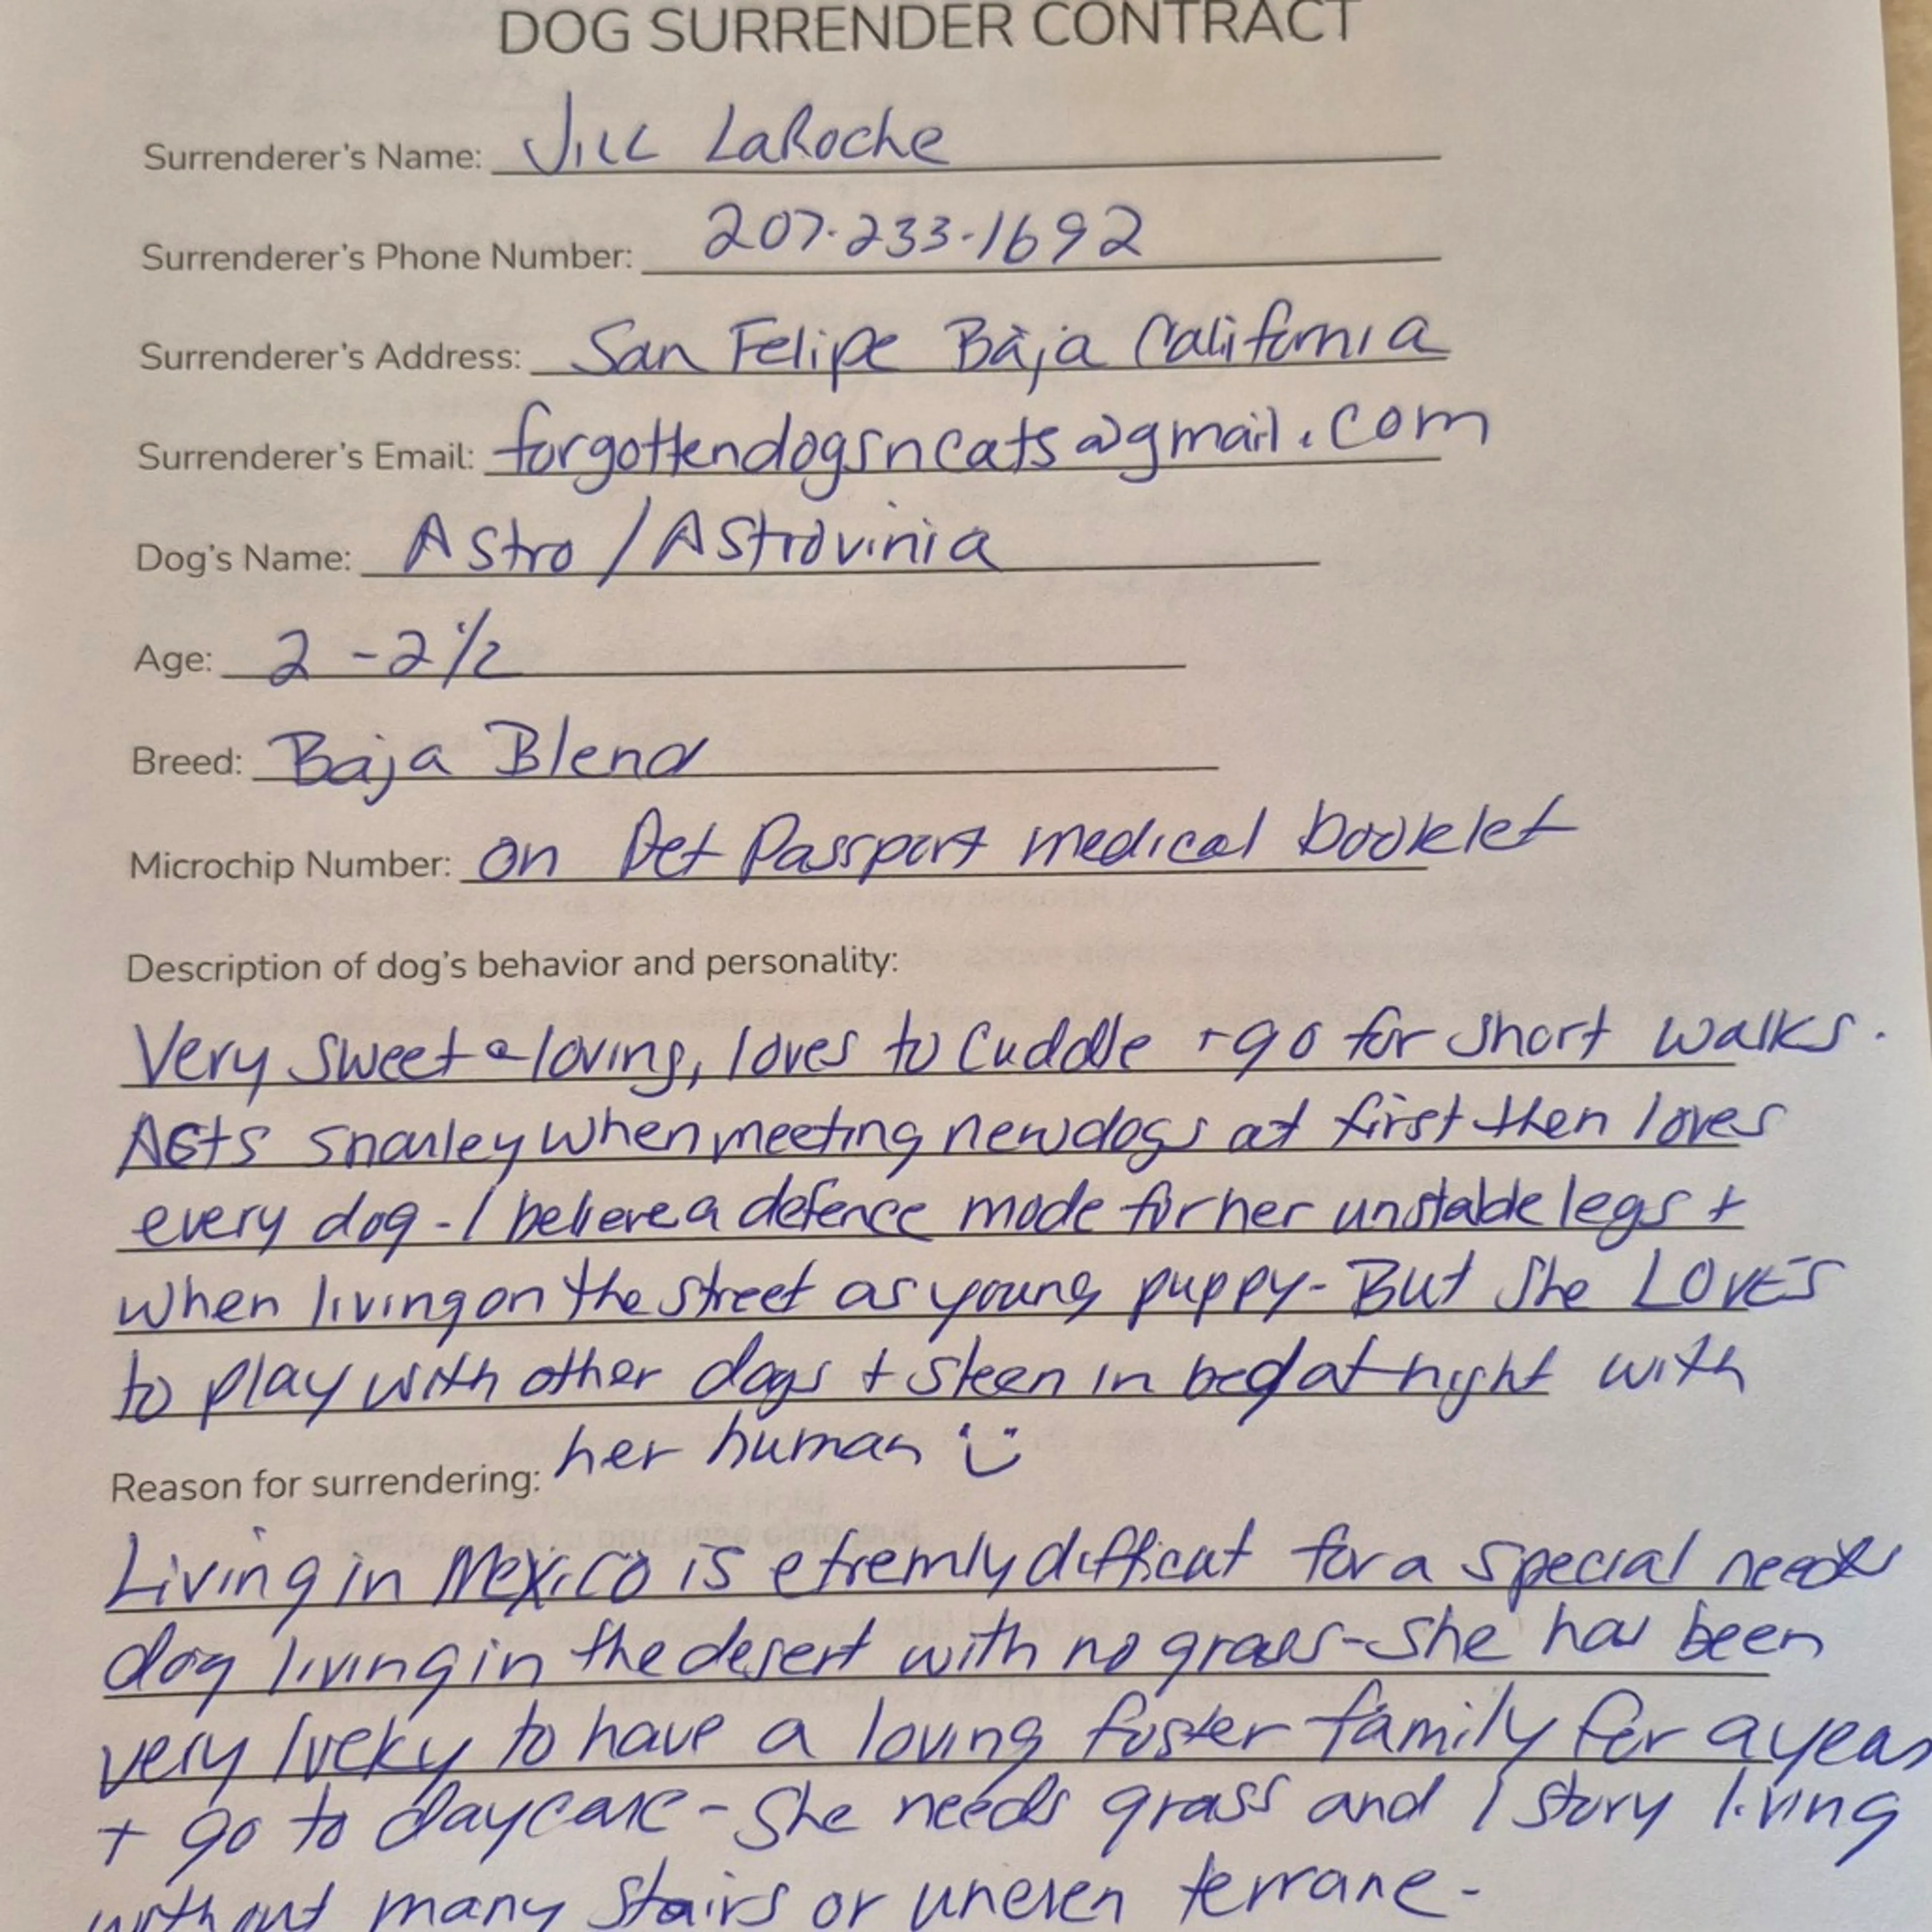 DOG SURRENDER CONTRACT
Surrenderer's Name: Jill LaRoche
Surrenderer's Phone Number: 207-233-1692
Surrenderer's Address: San Felipe Baja California
Surrenderer's Email: forgottendogsncats@gmail.com
Dog's Name: Astro / Astrovinia
Age: 2 - 2 1/2
Breed: Baja Blend
Microchip Number: on Pet Passport medical booklet
Description of dog's behavior and personality:
Very sweet & loving, loves to cuddle + go for short walks.
Acts snarley when meeting new dogs at first then loves
every dog - I believe a defence mode for her unstable legs +
when living on the street as young puppy - But she LOVES
to play with other dogs + sleep in bed at night with
her human
Reason for surrendering:
Living in Mexico is etremly difficut for a special needs
dog living in the desert with no grass - She has been
very lucky to have a loving foster family for a year
+ go to daycare - She needs grass and 1 story living
without many stairs or uneven terrane -